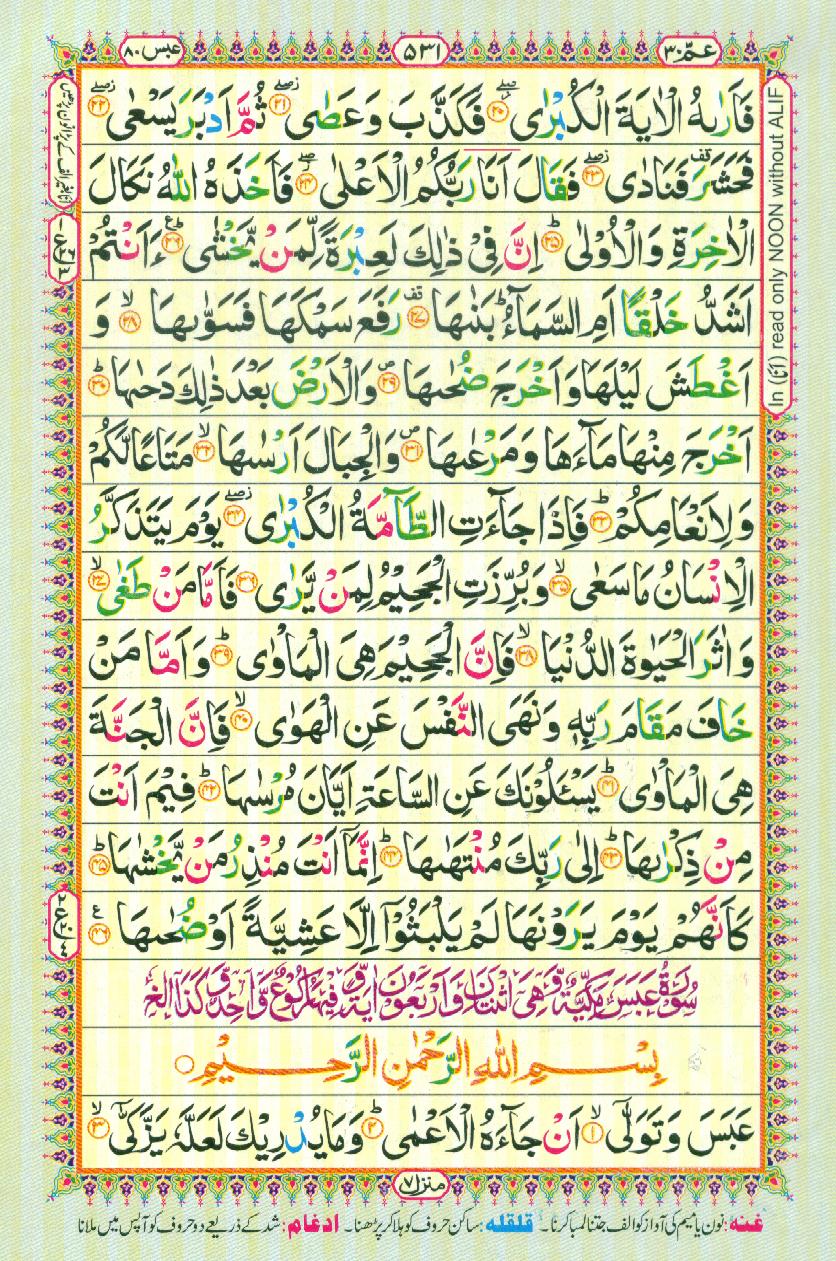 عمّ ۳۰
۵۳۱
عبس ۸۰
فَاَرٰىهُ الْاٰيَةَ الْكُبْرٰى ۲۰ فَكَذَّبَ وَعَصٰى ۲۱ ثُمَّ اَدْبَرَ يَسْعٰى ۲۲
فَحَشَرَ فَنَادٰى ۲۳ فَقَالَ اَنَا رَبُّكُمُ الْاَعْلٰى ۲۴ فَاَخَذَهُ اللّٰهُ نَكَالَ
الْاٰخِرَةِ وَالْاُوْلٰى ۲۵ اِنَّ فِیْ ذٰلِكَ لَعِبْرَةً لِّمَنْ يَّخْشٰى ۲۶ ءَاَنْتُمْ
اَشَدُّ خَلْقًا اَمِ السَّمَآءُ بَنٰىهَا ۲۷ رَفَعَ سَمْكَهَا فَسَوّٰىهَا ۲۸ وَ
اَغْطَشَ لَيْلَهَا وَاَخْرَجَ ضُحٰىهَا ۲۹ وَالْاَرْضَ بَعْدَ ذٰلِكَ دَحٰىهَا ۳۰
اَخْرَجَ مِنْهَا مَآءَهَا وَمَرْعٰىهَا ۳۱ وَالْجِبَالَ اَرْسٰىهَا ۳۲ مَتَاعًا لَّكُمْ
وَلِاَنْعَامِكُمْ ۳۳ فَاِذَا جَآءَتِ الطَّآمَّةُ الْكُبْرٰى ۳۴ يَوْمَ يَتَذَكَّرُ
الْاِنْسَانُ مَا سَعٰى ۳۵ وَبُرِّزَتِ الْجَحِيْمُ لِمَنْ يَّرٰى ۳۶ فَاَمَّا مَنْ طَغٰى ۳۷
وَاٰثَرَ الْحَيٰوةَ الدُّنْيَا ۳۸ فَاِنَّ الْجَحِيْمَ هِىَ الْمَاْوٰى ۳۹ وَاَمَّا مَنْ
خَافَ مَقَامَ رَبِّهٖ وَنَهَى النَّفْسَ عَنِ الْهَوٰى ۴۰ فَاِنَّ الْجَنَّةَ
هِىَ الْمَاْوٰى ۴۱ يَسْـَٔلُوْنَكَ عَنِ السَّاعَةِ اَيَّانَ مُرْسٰىهَا ۴۲ فِيْمَ اَنْتَ
مِنْ ذِكْرٰىهَا ۴۳ اِلٰى رَبِّكَ مُنْتَهٰىهَا ۴۴ اِنَّمَآ اَنْتَ مُنْذِرُ مَنْ يَّخْشٰىهَا ۴۵
كَاَنَّهُمْ يَوْمَ يَرَوْنَهَا لَمْ يَلْبَثُوْٓا اِلَّا عَشِيَّةً اَوْ ضُحٰىهَا ۴۶
سُوْرَةُ عَبَسَ مَكِّيَّةٌ وَّهِىَ اثْنَتَانِ وَاَرْبَعُوْنَ اٰيَةً وَّفِيْهَا رُكُوْعٌ وَّاحِدٌ
بِسْمِ اللّٰهِ الرَّحْمٰنِ الرَّحِيْمِ
عَبَسَ وَتَوَلّٰٓى ۱ اَنْ جَآءَهُ الْاَعْمٰى ۲ وَمَا يُدْرِيْكَ لَعَلَّهٗ يَزَّكّٰٓى ۳
منزل ۷
غنه: نون یا میم کی آواز کو الف جتنا لمبا کرنا۔ قلقله: ساکن حروف کو ہلا کر پڑھنا۔ ادغام: شد کے ذریعے دو حروف کو آپس میں ملانا
In (اَنَا) read only NOON without ALIF